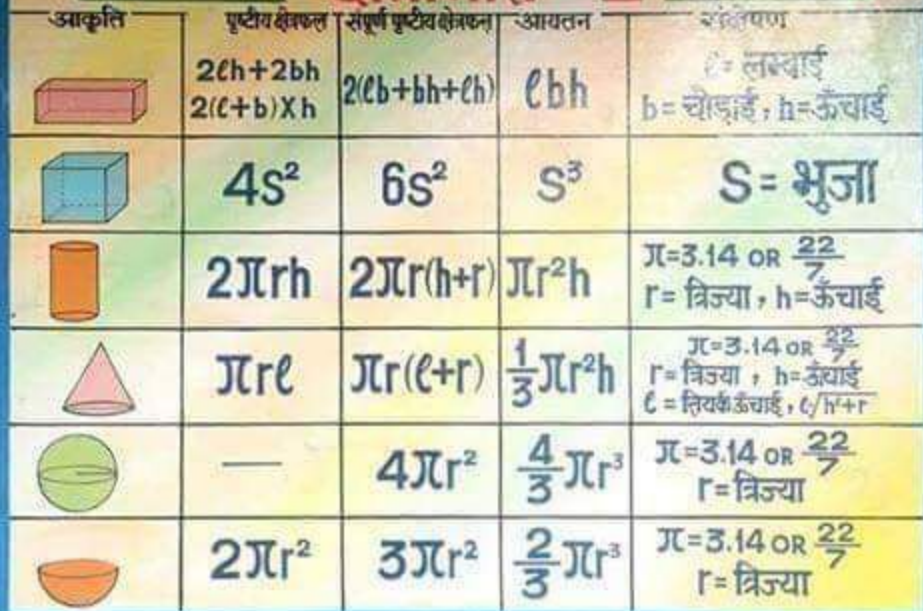 आकृति पृष्टीय क्षेत्रफल संपूर्ण पृष्टीय क्षेत्रफल आयतन संक्षेपण
2ℓh+2bh
2(ℓ+b)Xh
2(ℓb+bh+ℓh)
ℓbh
ℓ= लम्बाई
b= चोड़ाई, h=ऊँचाई
4s² 6s² S³ S= भुजा
2πrh 2πr(h+r) πr²h
π=3.14 OR 22/7
r= त्रिज्या, h=ऊँचाई
πrℓ πr(ℓ+r) 1/3 πr²h
π=3.14 OR 22/7
r=त्रिज्या, h=ऊँचाई
ℓ=तिर्यक ऊंचाई,
— 4πr² 4/3 πr³
π=3.14 OR 22/7
r=त्रिज्या
2πr² 3πr² 2/3 πr³
π=3.14 OR 22/7
r=त्रिज्या